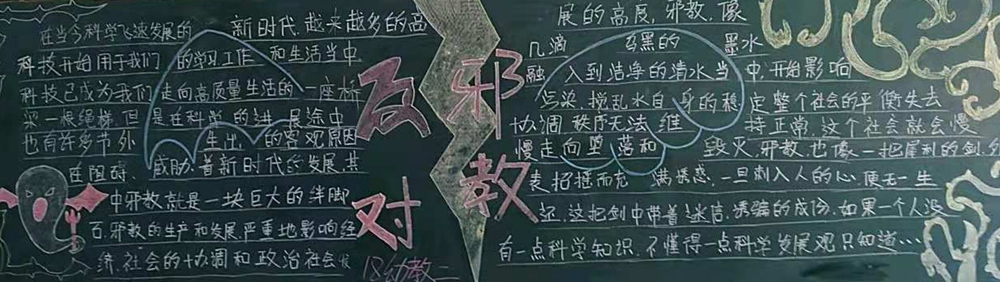 在当今科学飞速发展的 新时代,越来越多的高
科技开始用于我们 的学习工作 和生活当中
科技已成为我们走向高质量生活的一座桥
梁一根绳梯,但是在科学的进展途中
也有许多节外 生出 的客观原因
在阻碍、威胁着新时代的发展,其
中邪教就是一块巨大的绊脚
石.邪教的生产和发展,严重地影响经
济、社会的协调和政治社会发
反对
邪教
18幼教二
展的高度,邪教,像
几滴 黑的 墨水
融入到洁净的清水当中,开始影响
搅乱水自身的稳定整个社会的平衡失去
协调 秩序无法维持正常.这个社会就会慢
慢走向堕落和 毁灭.邪教,也像一把犀利的剑,外
表招摇而充满诱惑,一旦刺入人的心便无一生
还.这把剑中带着迷信、诱骗的成份.如果一个人没
有一点科学知识,不懂得一点科学发展观只知道…